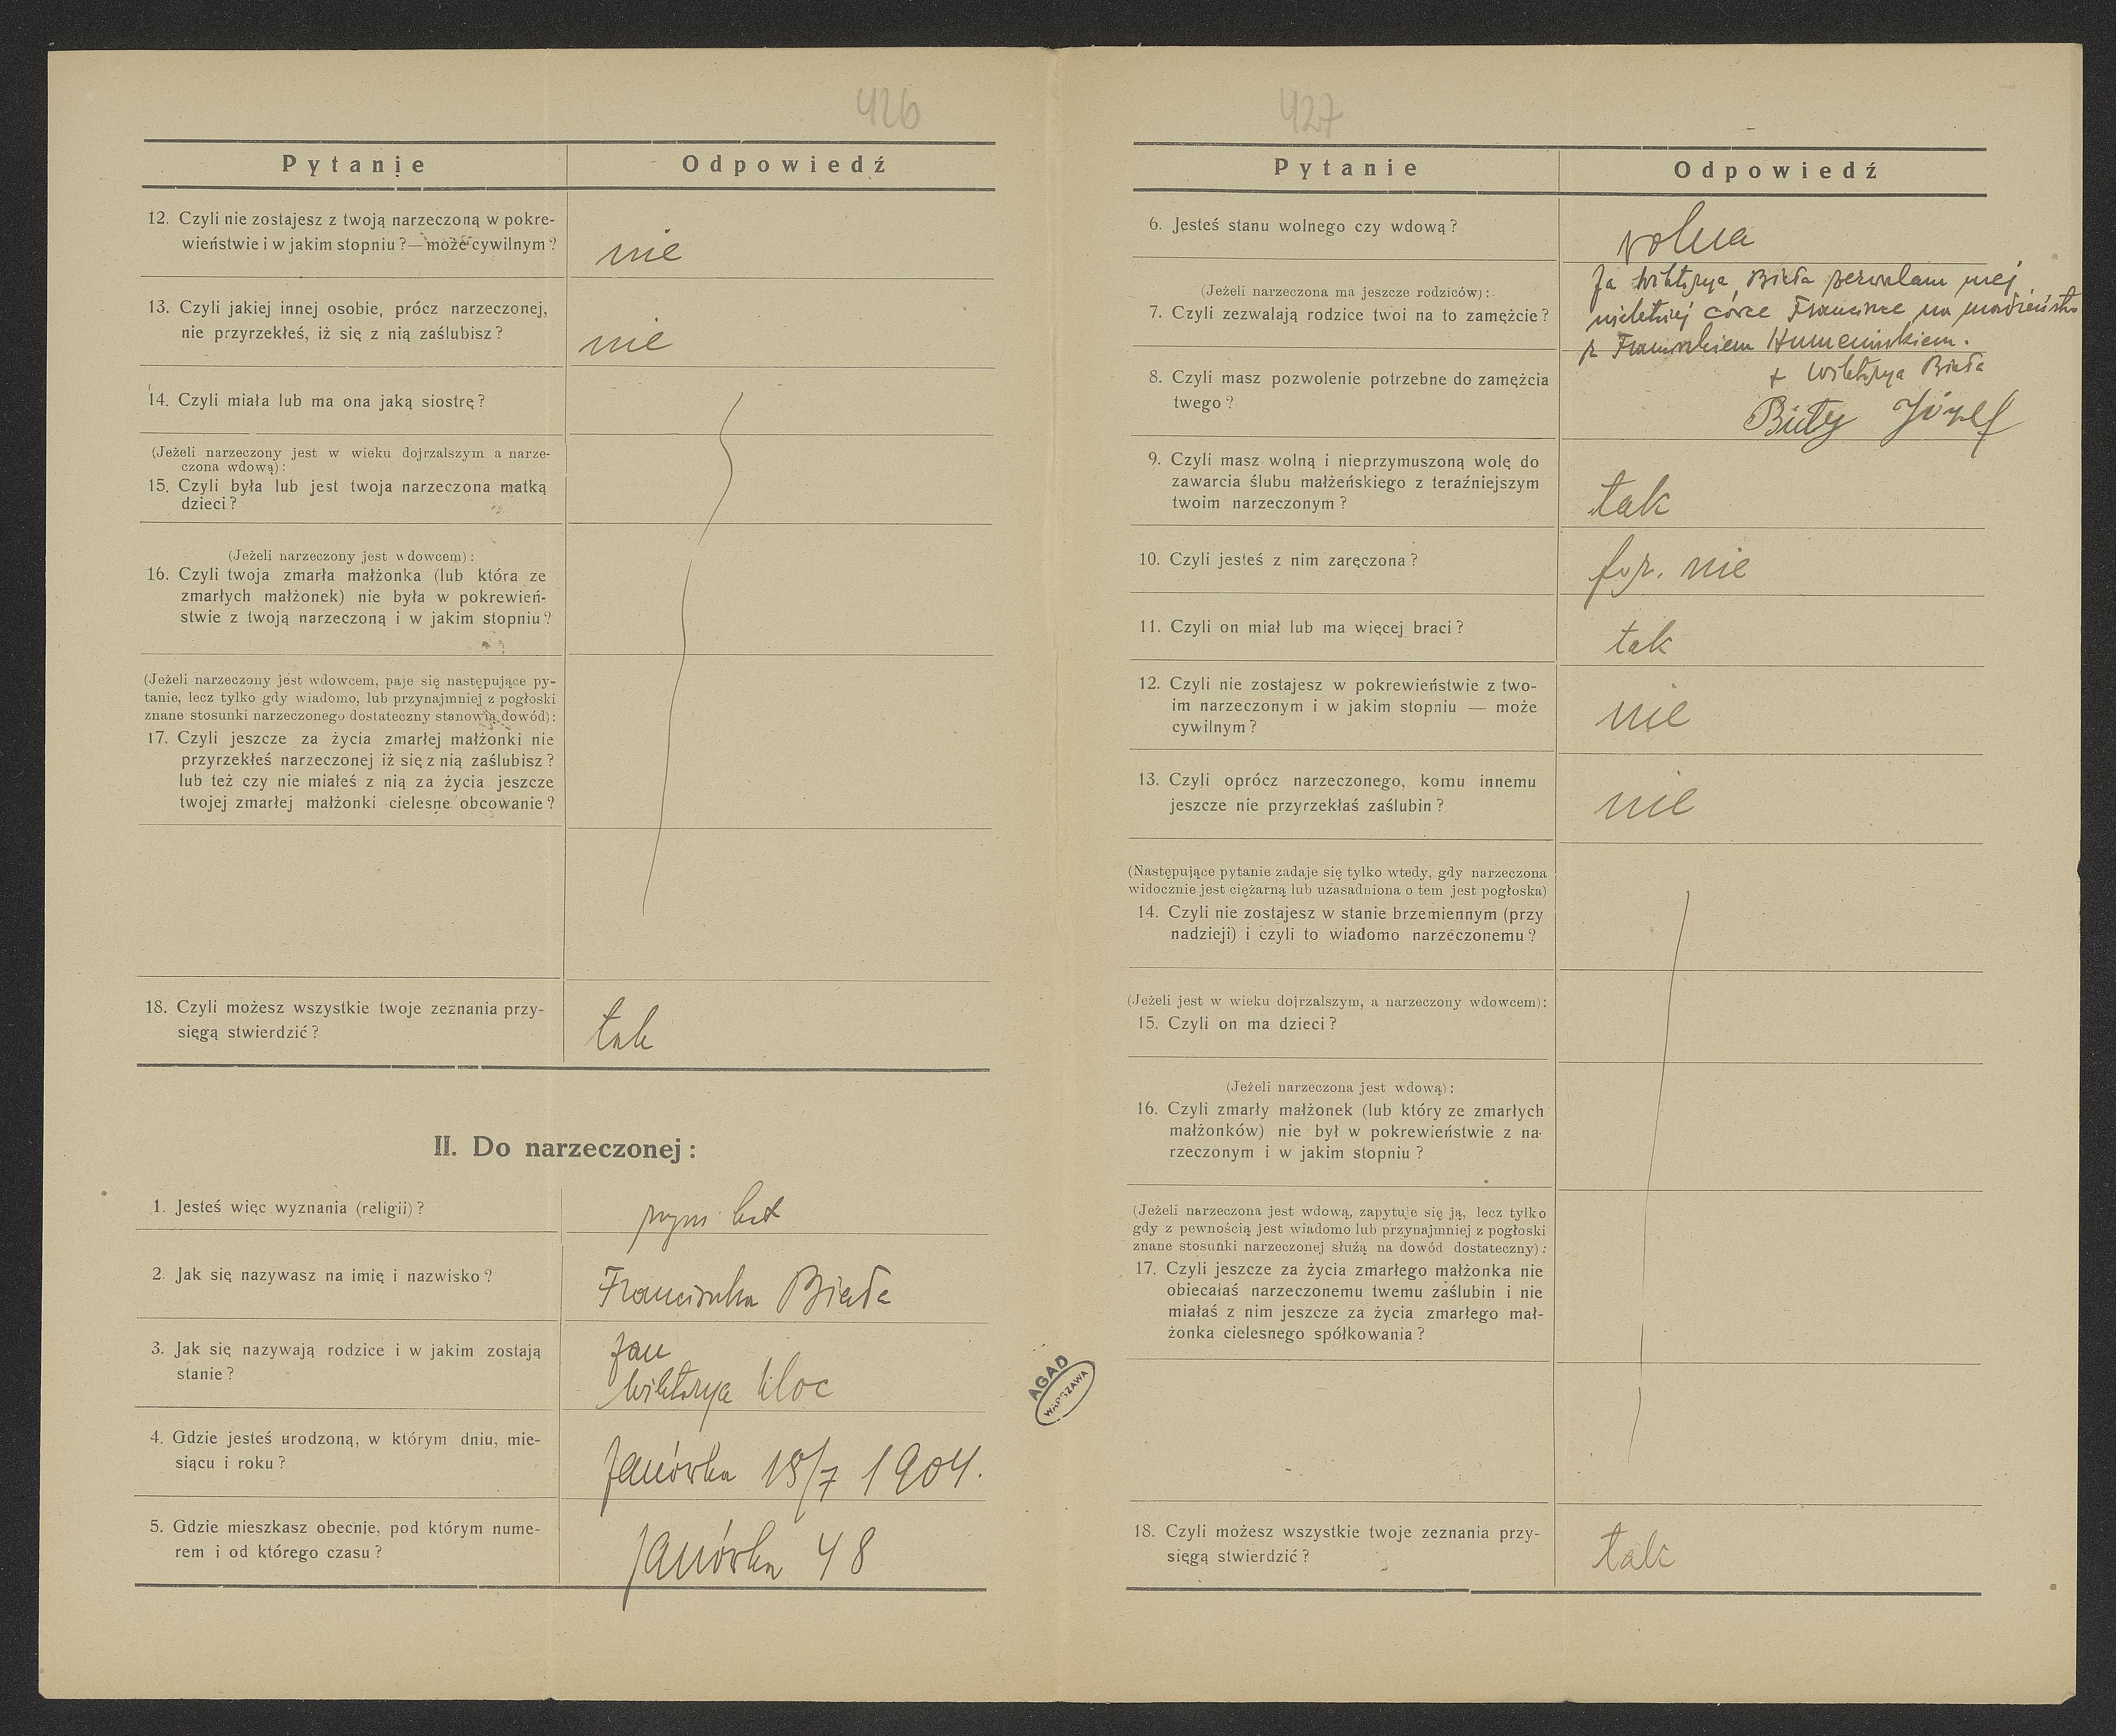 426
Pytanie
Odpowiedź
12. Czyli nie zostajesz z twoją narzeczoną w pokre-
wieństwie i w jakim stopniu? — może cywilnym?
nie
13. Czyli jakiej innej osobie, prócz narzeczonej,
nie przyrzekłeś, iż się z nią zaślubisz?
nie
14. Czyli miała lub ma ona jaką siostrę?
(Jeżeli narzeczony jest w wieku dojrzalszym a narze-
czona wdową):
15. Czyli była lub jest twoja narzeczona matką
dzieci?
(Jeżeli narzeczony jest wdowcem):
16. Czyli twoja zmarła małżonka (lub która ze
zmarłych małżonek) nie była w pokrewień-
stwie z twoją narzeczoną i w jakim stopniu?
(Jeżeli narzeczony jest wdowcem, paje się następujące py-
tanie, lecz tylko gdy wiadomo, lub przynajmniej z pogłoski
znane stosunki narzeczonego dostateczny stanowią dowód):
17. Czyli jeszcze za życia zmarłej małżonki nie
przyrzekłeś narzeczonej iż się z nią zaślubisz?
lub też czy nie miałeś z nią za życia jeszcze
twojej zmarłej małżonki cielesne obcowanie?
18. Czyli możesz wszystkie twoje zeznania przy-
sięgą stwierdzić?
tak
II. Do narzeczonej:
1. Jesteś więc wyznania (religii)?
rzym kat
2. Jak się nazywasz na imię i nazwisko?
Franciszka Biała
3. Jak się nazywają rodzice i w jakim zostają
stanie?
Jan
Wiktorya Kloc
4. Gdzie jesteś urodzoną, w którym dniu, mie-
siącu i roku?
Janówka 18/7 1904.
5. Gdzie mieszkasz obecnie, pod którym nume-
rem i od którego czasu?
Janówka 48
AGAD
WARSZAWA
427
Pytanie
Odpowiedź
6. Jesteś stanu wolnego czy wdową?
wolna
(Jeżeli narzeczona ma jeszcze rodziców):
7. Czyli zezwalają rodzice twoi na to zamężcie?
Ja Wiktorya Biała zezwalam mej
nieletniej córce Franciszce na małżeństwo
z Franciszkiem Humenińskiem.
+ Wiktorya Biała
8. Czyli masz pozwolenie potrzebne do zamężcia
twego?
Biały Józef
9. Czyli masz wolną i nieprzymuszoną wolę do
zawarcia ślubu małżeńskiego z teraźniejszym
twoim narzeczonym?
tak
10. Czyli jesteś z nim zaręczona?
nie
11. Czyli on miał lub ma więcej braci?
tak
12. Czyli nie zostajesz w pokrewieństwie z two-
im narzeczonym i w jakim stopniu — może
cywilnym?
nie
13. Czyli oprócz narzeczonego, komu innemu
jeszcze nie przyrzekłaś zaślubin?
nie
(Następujące pytanie zadaje się tylko wtedy, gdy narzeczona
widocznie jest ciężarną lub uzasadniona o tem jest pogłoska)
14. Czyli nie zostajesz w stanie brzemiennym (przy
nadzieji) i czyli to wiadomo narzeczonemu?
(Jeżeli jest w wieku dojrzalszym, a narzeczony wdowcem):
15. Czyli on ma dzieci?
(Jeżeli narzeczona jest wdową):
16. Czyli zmarły małżonek (lub który ze zmarłych
małżonków) nie był w pokrewieństwie z na-
rzeczonym i w jakim stopniu?
(Jeżeli narzeczona jest wdową, zapytuje się ją, lecz tylko
gdy z pewnością jest wiadomo lub przynajmniej z pogłoski
znane stosunki narzeczonej służą na dowód dostateczny):
17. Czyli jeszcze za życia zmarłego małżonka nie
obiecałaś narzeczonemu twemu zaślubin i nie
miałaś z nim jeszcze za życia zmarłego mał-
żonka cielesnego spółkowania?
18. Czyli możesz wszystkie twoje zeznania przy-
sięgą stwierdzić?
tak